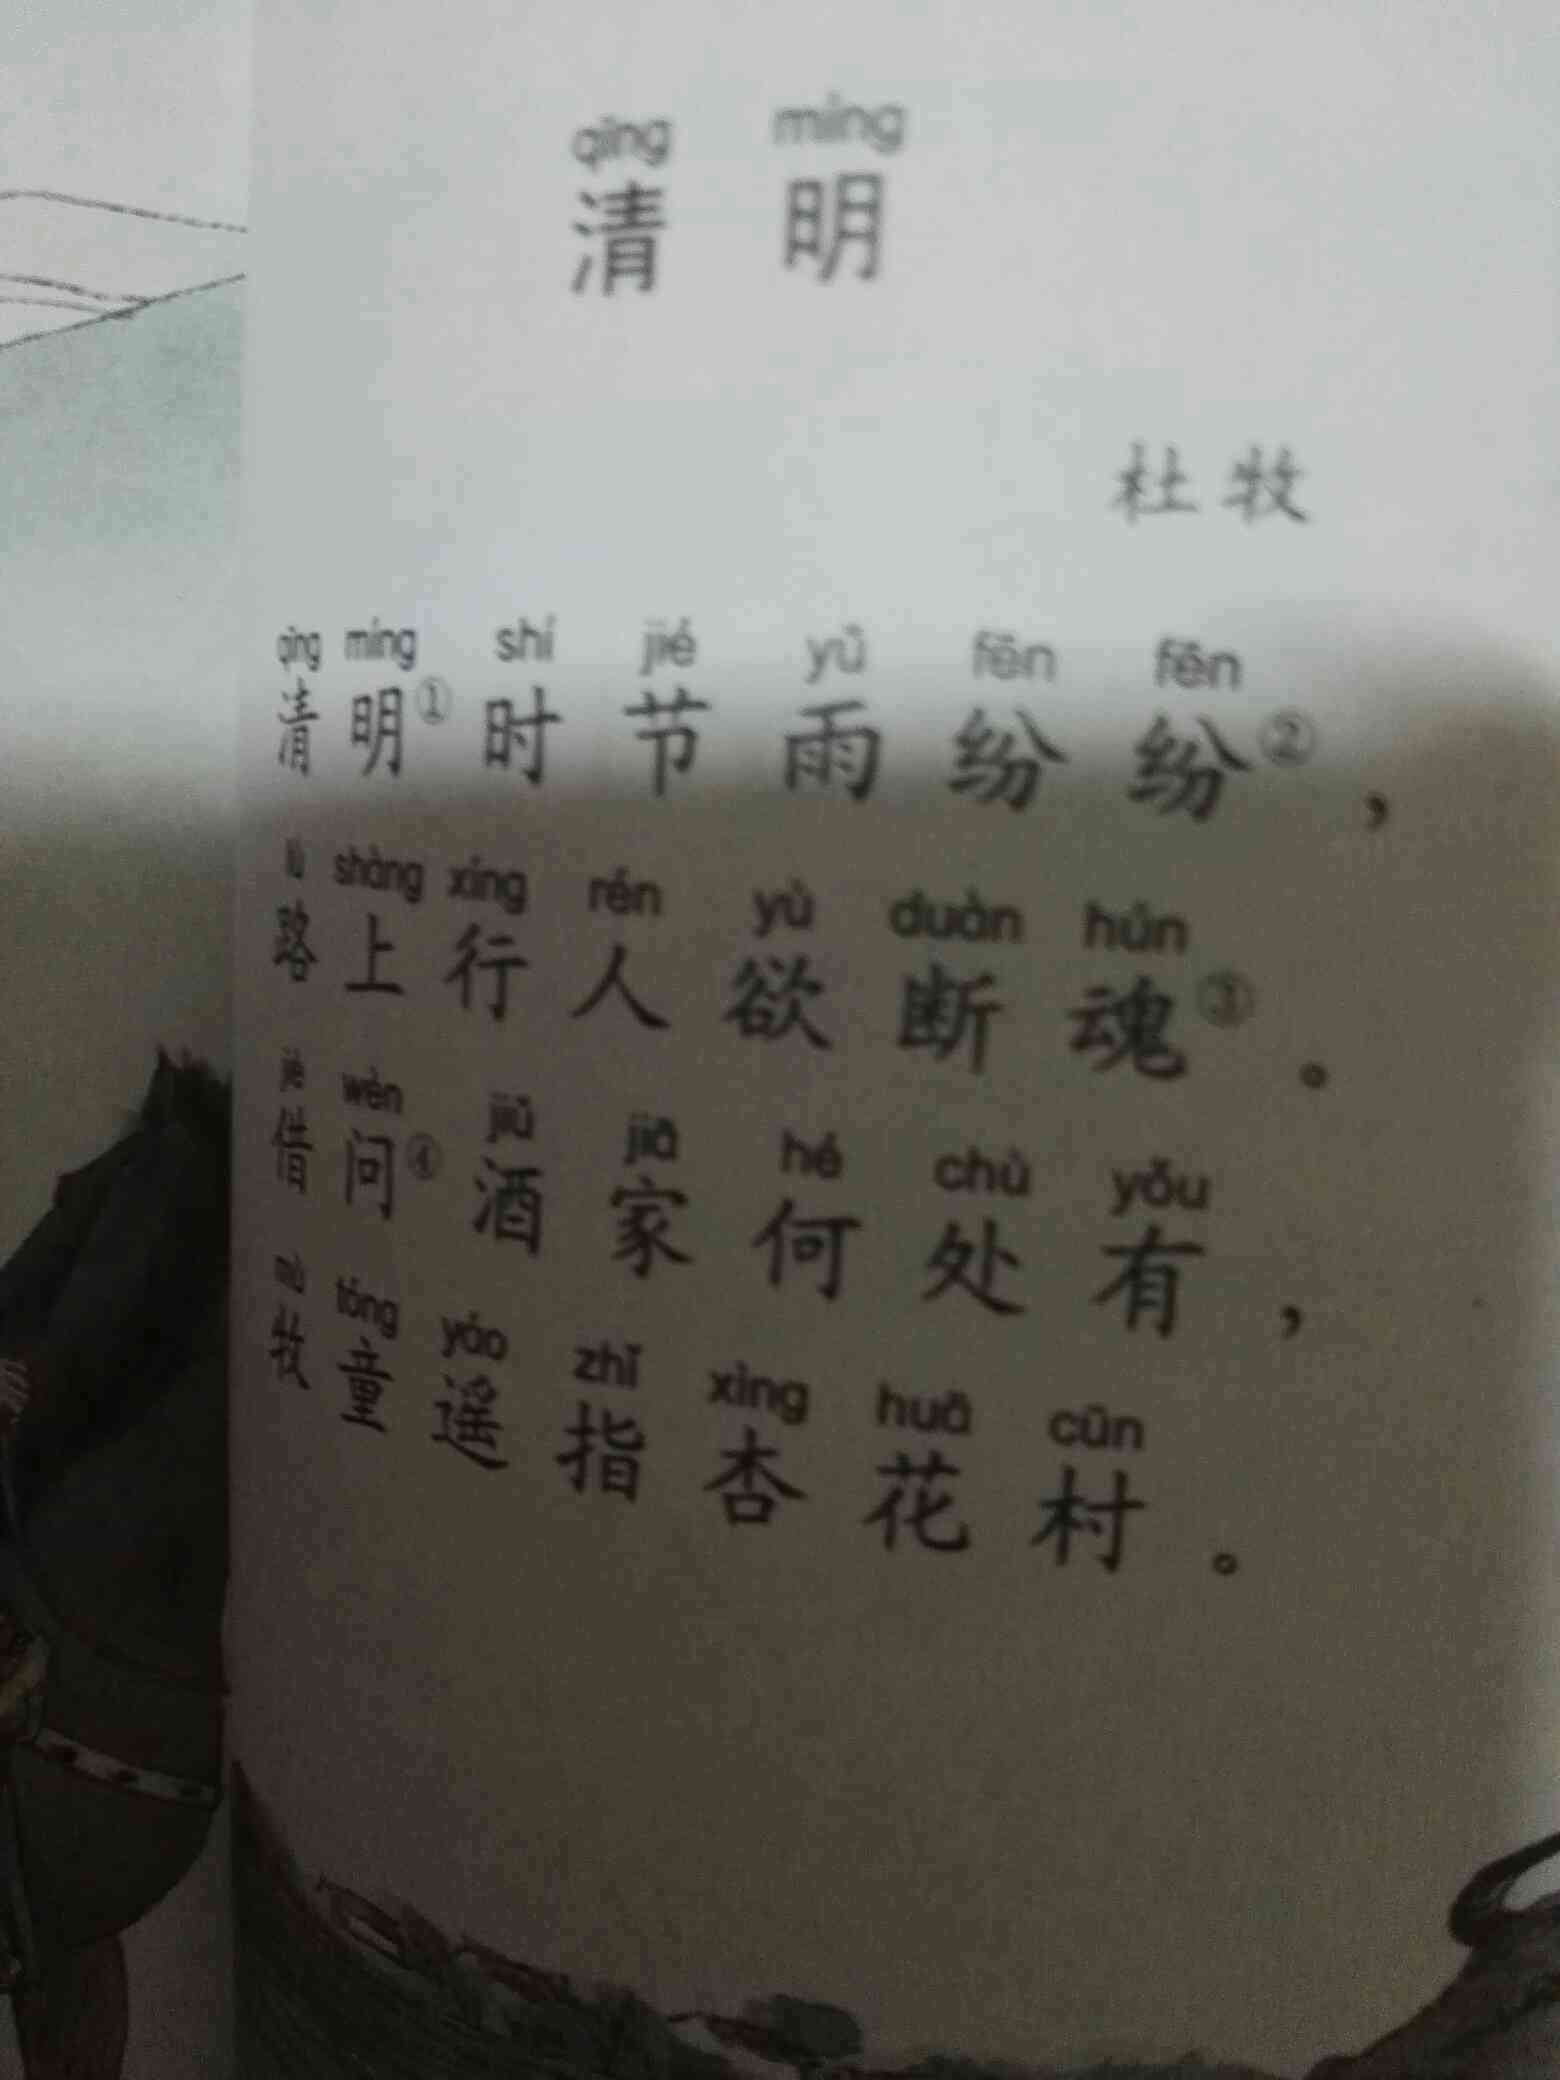 qīng míng
清 明
杜 牧
qīng míng shí jié yǔ fēn fēn
清 明① 时 节 雨 纷 纷②，
lù shàng xíng rén yù duàn hún
路 上 行 人 欲 断 魂③。
jiè wèn jiǔ jiā hé chù yǒu
借 问④ 酒 家 何 处 有，
mù tóng yáo zhǐ xìng huā cūn
牧 童 遥 指 杏 花 村。